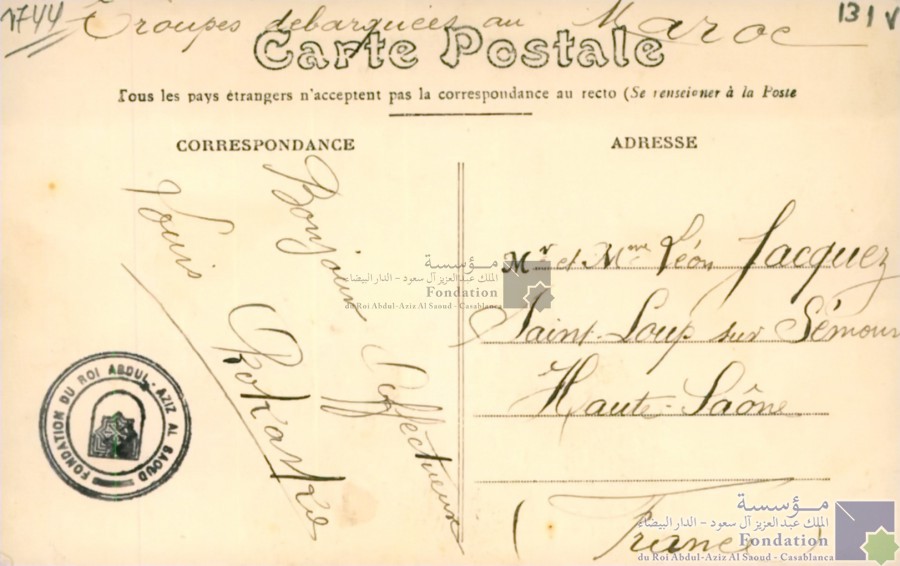 1744
131 v
Troupes debarquées au Maroc
Carte Postale
Tous les pays étrangers n'acceptent pas la correspondance au recto (Se renseigner à la Poste
CORRESPONDANCE
ADRESSE
Bonjour Affectueux
Louis
Mr et Mme Léon Jacquez
Saint-Loup sur Sémouse
Haute-Saône
(France)
FONDATION DU ROI ABDUL-AZIZ AL SAOUD
مؤسسة
الملك عبد العزيز آل سعود - الدار البيضاء
Fondation
du Roi Abdul-Aziz Al Saoud - Casablanca
مؤسسة
الملك عبد العزيز آل سعود - الدار البيضاء
Fondation
du Roi Abdul-Aziz Al Saoud - Casablanca